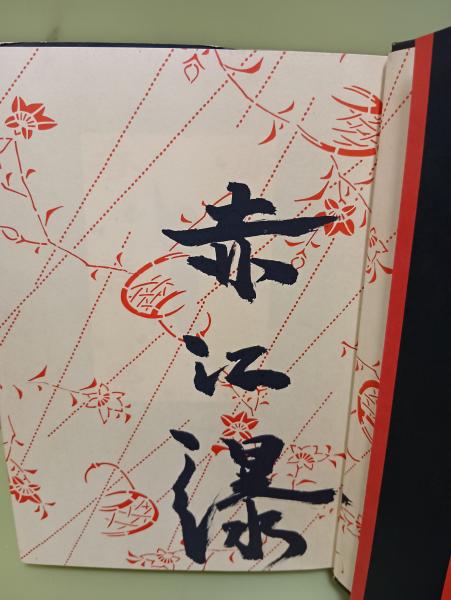 赤江瀑